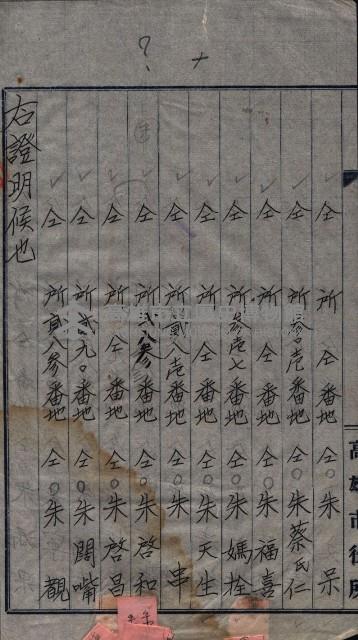 仝 所 仝 番地 仝 〇 朱 呆
仝 所 参〇壱番地 仝 〇 朱蔡氏仁
仝 所 仝 番地 仝 〇 朱 福喜
仝 所 参壱七番地 仝 〇 朱 媽拴
仝 所 仝 番地 仝 〇 朱 天生
仝 所 貳八壱番地 仝 〇 朱 串
仝 所 貳八参番地 仝 〇 朱 啓和
仝 所 仝 番地 仝 〇 朱 啓昌
仝 所 貳九〇番地 仝 〇 朱 闊嘴
仝 所 貳八参番地 仝 〇 朱 觀
右證明候也
高雄市役所